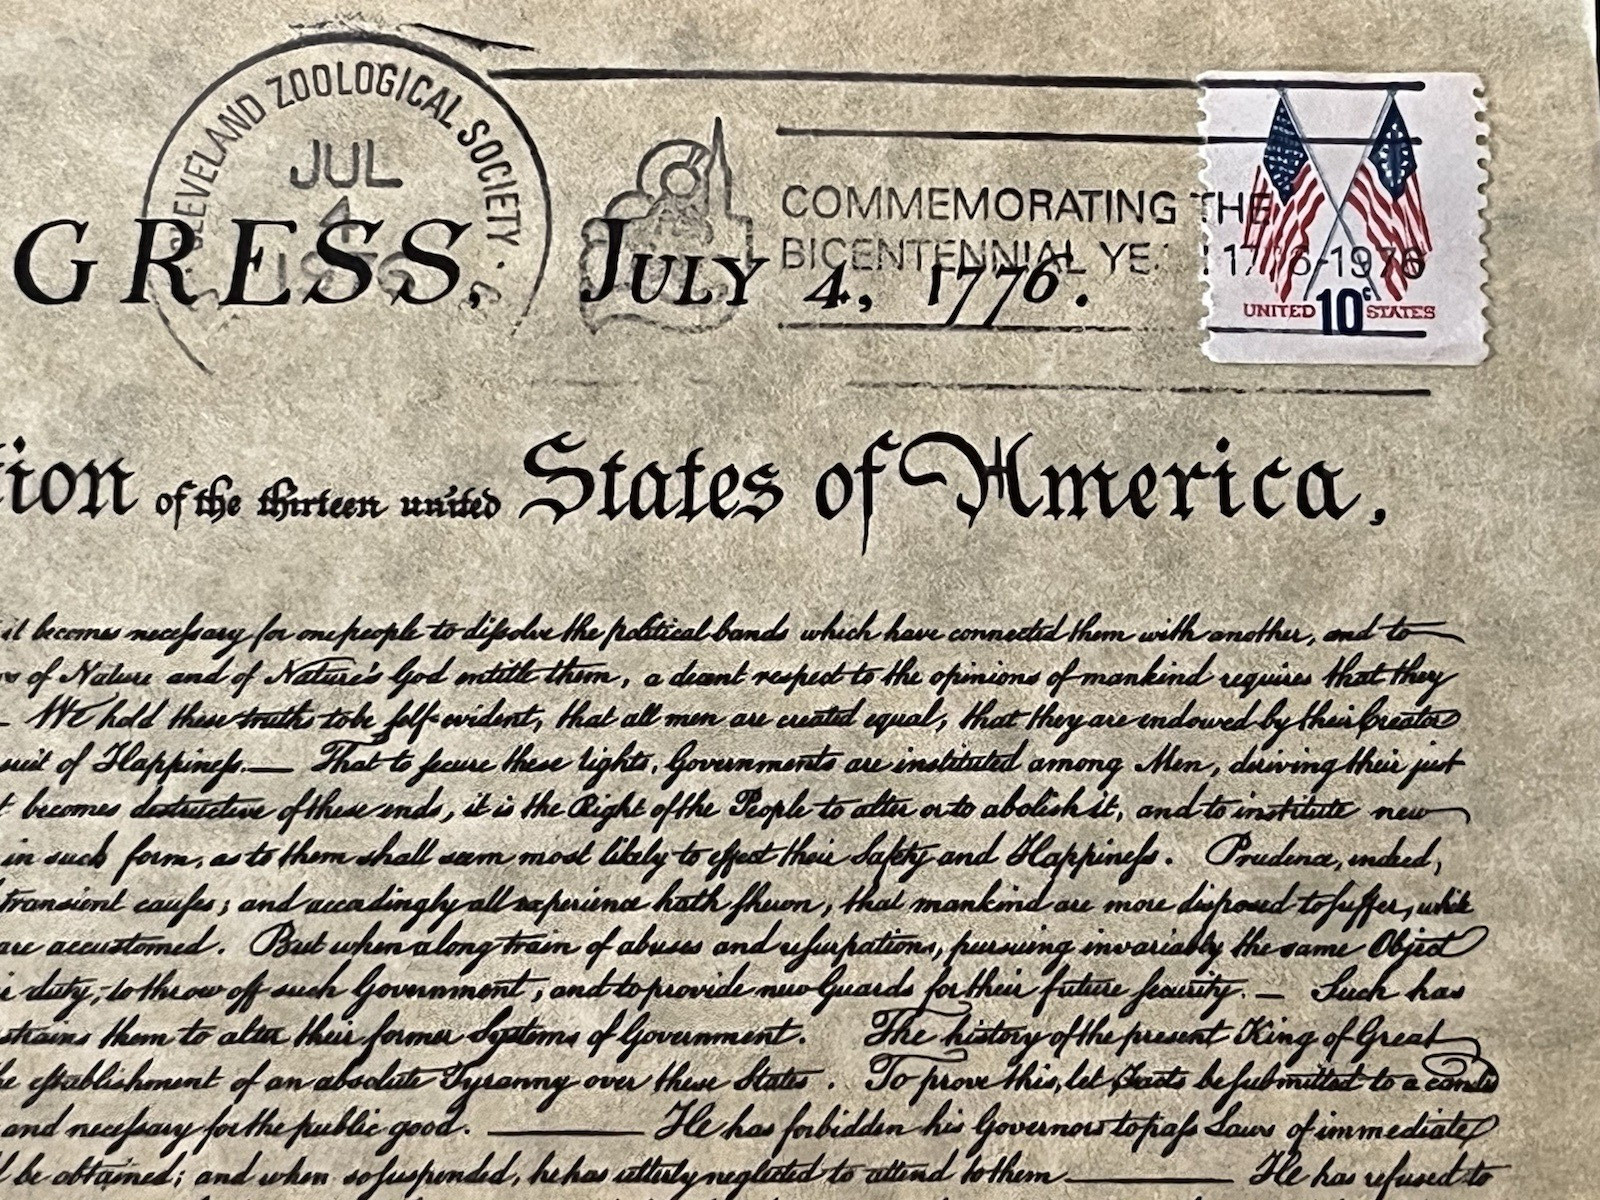 CLEVELAND ZOOLOGICAL SOCIETY
JUL
4
1976
COMMEMORATING THE
BICENTENNIAL YEAR 1776-1976
UNITED 10c STATES
GRESS, JULY 4, 1776.
tion of the thirteen united States of America,
it becomes necessary for one people to dissolve the political bands which have connected them with another, and to
of Nature and of Nature's God entitle them, a decent respect to the opinions of mankind requires that they
We hold these truths to be self-evident, that all men are created equal, that they are endowed by their Creator
suit of Happiness.— That to secure these rights, Governments are instituted among Men, deriving their just
becomes destructive of these ends, it is the Right of the People to alter or to abolish it, and to institute new
in such form, as to them shall seem most likely to effect their Safety and Happiness. Prudence, indeed,
transient causes; and accordingly all experience hath shewn, that mankind are more disposed to suffer, while
are accustomed. But when a long train of abuses and usurpations, pursuing invariably the same Object
duty, to throw off such Government, and to provide new Guards for their future security.— Such has
strains them to alter their former Systems of Government. The history of the present King of Great
he establishment of an absolute Tyranny over these States. To prove this, let Facts be submitted to a candid
and necessary for the public good. — He has forbidden his Governors to pass Laws of immediate
be obtained; and when so suspended, he has utterly neglected to attend to them — He has refused to